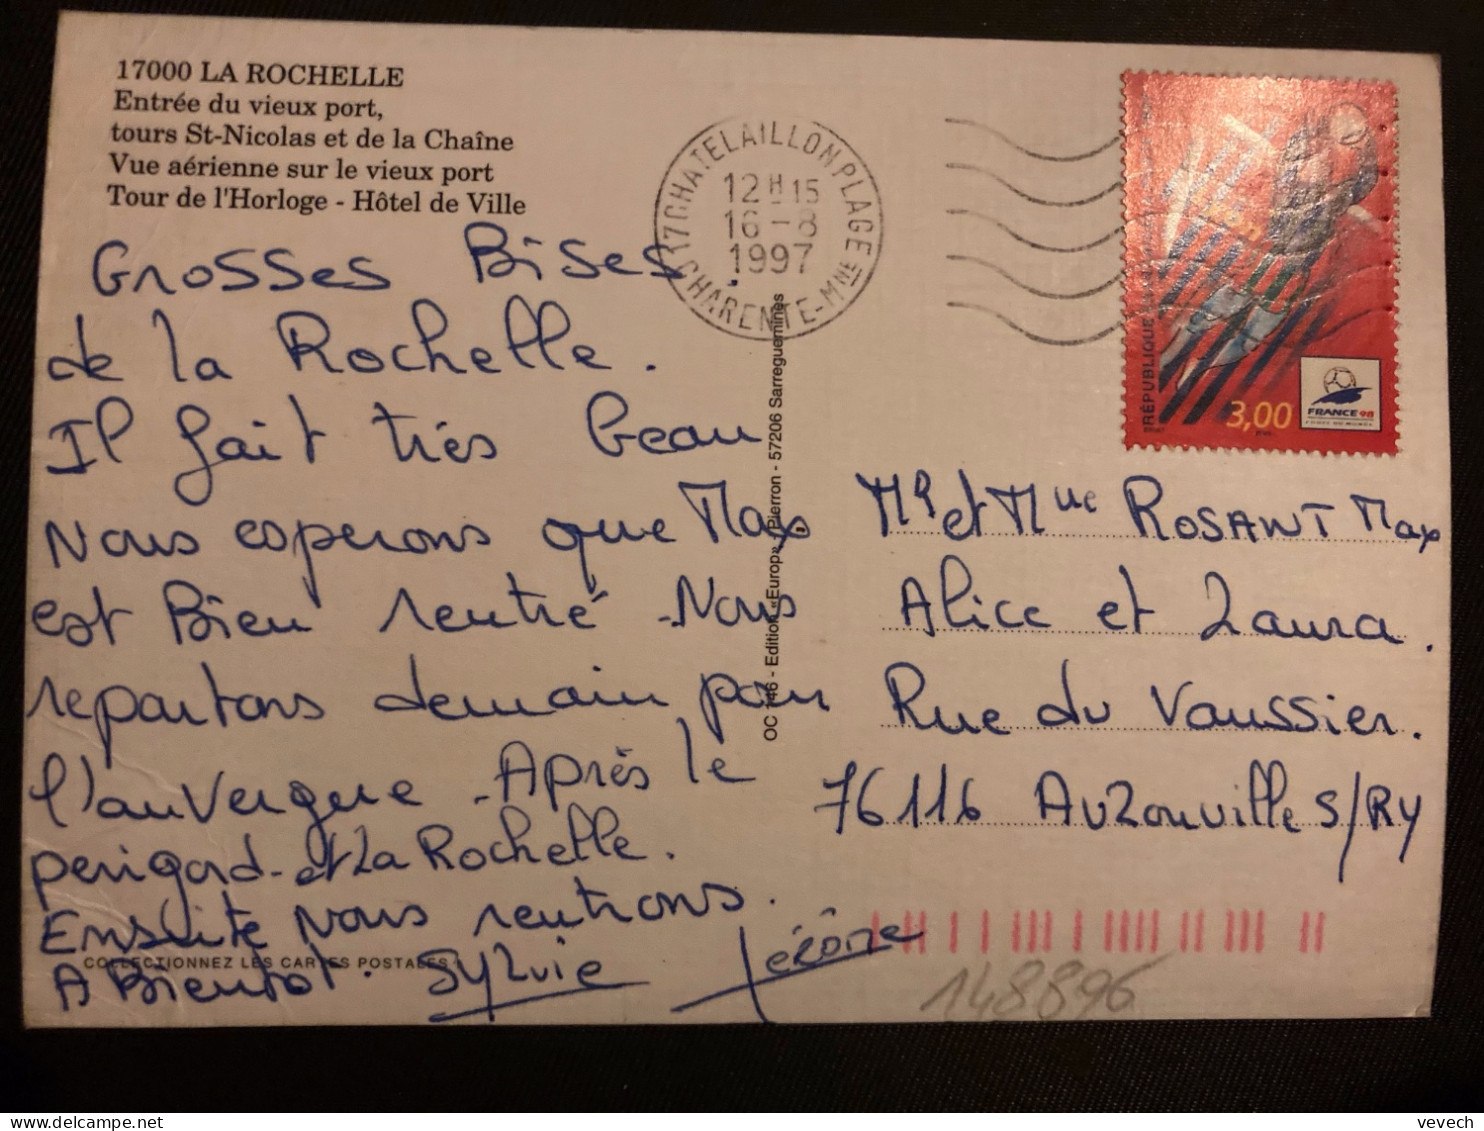 17000 LA ROCHELLE
Entrée du vieux port,
tours St-Nicolas et de la Chaîne
Vue aérienne sur le vieux port
Tour de l'Horloge - Hôtel de Ville
17 CHATELAILLON PLAGE
12H15
16-8
1997
CHARENTE-MME
RÉPUBLIQUE
3,00
FRANCE 98
Grosses Bises
de la Rochelle.
Il fait très beau
Nous esperons que Max
est Bien rentré. Nous
repartons demain pour
l'auvergne. Après le
perigord et La Rochelle.
Ensuite Nous rentrons.
A Bientot. Sylvie Jérôme
COLLECTIONNEZ LES CARTES POSTALES
OC 146 - Edition «Europ» Pierron - 57206 Sarreguemines
Mr et Mme ROSANT Max
Alice et Laura.
Rue du Vaussier.
76116 AUZouville S/RY
148896
vevech